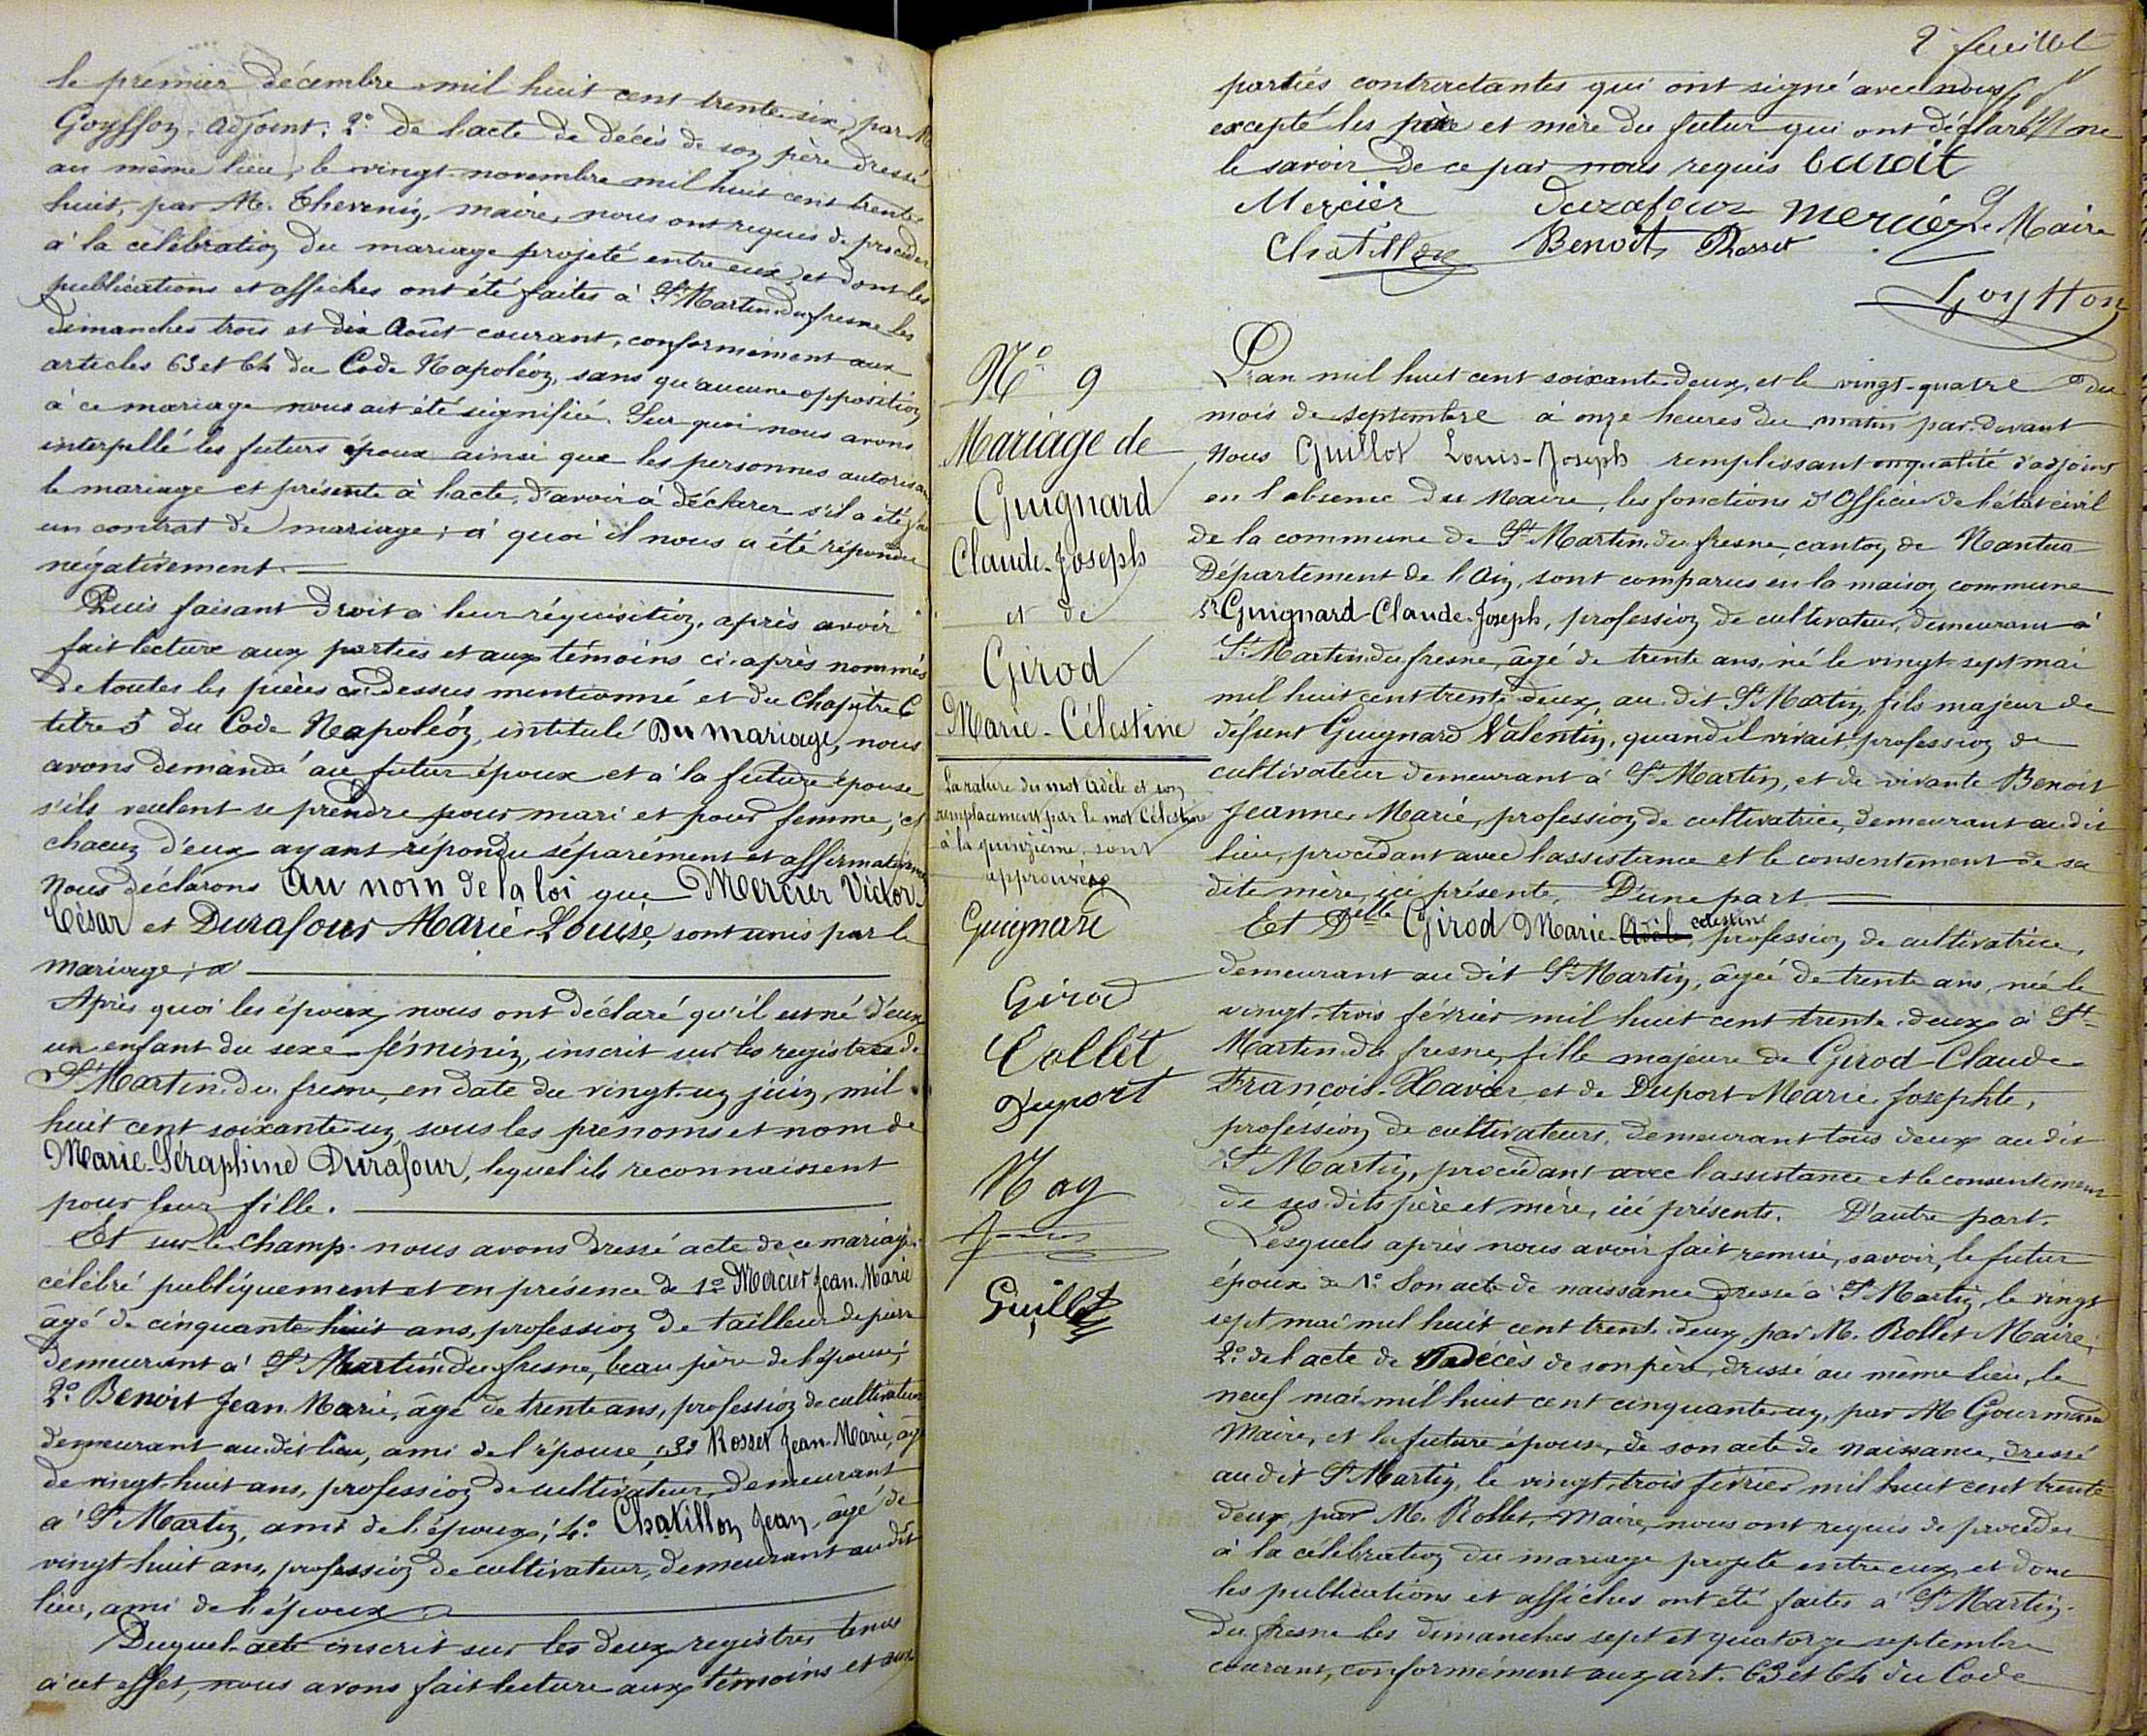 le premier décembre mil huit cent trente-six, par M.
Goyffon, adjoint. 2º de l'acte de décès de son père dressé
au même lieu, le vingt-novembre mil huit cent trente
huit, par M. Thevenin, maire, nous ont requis de procéder
à la célébration du mariage projeté entre eux, et dont les
publications et affiches ont été faites à St Martin-du-fresne les
dimanches trois et dix Août courant, conformément aux
articles 63 et 64 du Code Napoléon, sans qu'aucune opposition
à ce mariage nous ait été signifiée. Sur quoi nous avons
interpellé les futurs époux ainsi que les personnes autorisant
le mariage et présente à l'acte, d'avoir à déclarer s'il a été fait
un contrat de mariage; à quoi il nous a été répondu
négativement.
Puis faisant droit à leur réquisition, après avoir
fait lecture aux parties et aux témoins ci-après nommés
de toutes les pièces ci-dessus mentionné et du Chapitre 6
titre 5 du Code Napoléon, intitulé Du mariage, nous
avons demandé au futur époux et à la future épouse
s'ils veulent se prendre pour mari et pour femme, et
chacun d'eux ayant répondu séparément et affirmativement
Nous déclarons Au nom de la loi que Mercier Victor-
César et Durafour Marie-Louise, sont unis par le
mariage;
Après quoi les époux nous ont déclaré qu'il est né d'eux
un enfant du sexe féminin, inscrit sur les registres de
St Martin-du-fresne, en date du vingt-un juin, mil
huit cent soixante-un, sous les prénoms et nom de
Marie-Séraphine Durafour, lequel ils reconnaissent
pour leur fille.
Et sur-le-champ nous avons dressé acte de ce mariage
célébré publiquement et en présence de 1º Mercier Jean-Marie
âgé de cinquante-huit ans, profession de tailleur de pierre
demeurant à St Martin-du-fresne, beau père de l'épouse;
2º Benoit Jean-Marie, âgé de trente ans, profession de cultivateur
demeurant au dit lieu, ami de l'épouse; 3º Rosset Jean-Marie, âgé
de vingt-huit ans, profession de cultivateur, demeurant
à St Martin, ami de l'époux; 4º Chatillon Jean, âgé de
vingt huit ans, profession de cultivateur, demeurant au dit
lieu, ami de l'époux
Duquel acte inscrit sur les deux registres tenus
à cet effet, nous avons fait lecture aux témoins et aux
2e feuillet
parties contractantes qui ont signé avec nous
excepté les père et mère du futur qui ont déclaré ne
le savoir de ce par nous requis Benoit
Mercier Durafour Mercier Le Maire
Chatillon Benoit Rosset
Goyffon
Nº 9
Mariage de
Guignard
Claude-Joseph
et de
Girod
Marie-Célestine
La rature du mot Adèle et son
remplacement par le mot Célestine
à la quinzième, sont
approuvés
Guignard
Girod
Collet
Duport
May
Guillot
L'an mil huit cent soixante-deux, et le vingt-quatre du
mois de septembre à onze heures du matin par-devant
Nous Guillot Louis-Joseph remplissant en qualité d'adjoint
en l'absence du Maire, les fonctions d'Officier de l'état civil
de la commune de St Martin-du-fresne, canton de Nantua
Département de l'Ain, sont comparus en la maison commune
Sr Guignard Claude-Joseph, profession de cultivateur, demeurant à
St Martin-du-fresne, âgé de trente ans, né le vingt-sept mai
mil huit cent trente-deux, au dit St Martin, fils majeur de
défunt Guignard Valentin, quand il vivait, profession de
cultivateur demeurant à St Martin, et de vivante Benoit
Jeanne-Marie, profession de cultivatrice, demeurant au dit
lieu, procédant avec l'assistance et le consentement de sa
dite mère, ici présente. D'une part
Et Delle Girod Marie-Adèle célestine, profession de cultivatrice,
demeurant au dit St Martin, âgée de trente ans, née le
vingt-trois février mil huit cent trente-deux à St
Martin-du fresne, fille majeure de Girod Claude
François-Xavier et de Duport Marie Josephte,
profession de cultivateurs, demeurant tous deux au dit
St Martin, procédant avec l'assistance et le consentement
de ses dits père et mère, ici présents. D'autre part.
Lesquels après nous avoir fait remise, savoir, le futur
époux de 1º Son acte de naissance dressé à St Martin, le vingt
sept mai mil huit cent trent-deux, par M. Rollet Maire;
2º de l'acte de décès de son père, dressé au même lieu, le
neuf mai mil huit cent cinquante-un, par M Gourmand
Maire, et la future épouse, de son acte de naissance, dressé
au dit St Martin, le vingt-trois février mil huit cent trente
deux, par M. Rollet, Maire, nous ont requis de procéder
à la célébration du mariage projeté entre eux, et dont
les publications et affiches ont été faites à St Martin-
du fresne les dimanches sept et quatorze septembre
courant, conformément aux art. 63 et 64 du Code